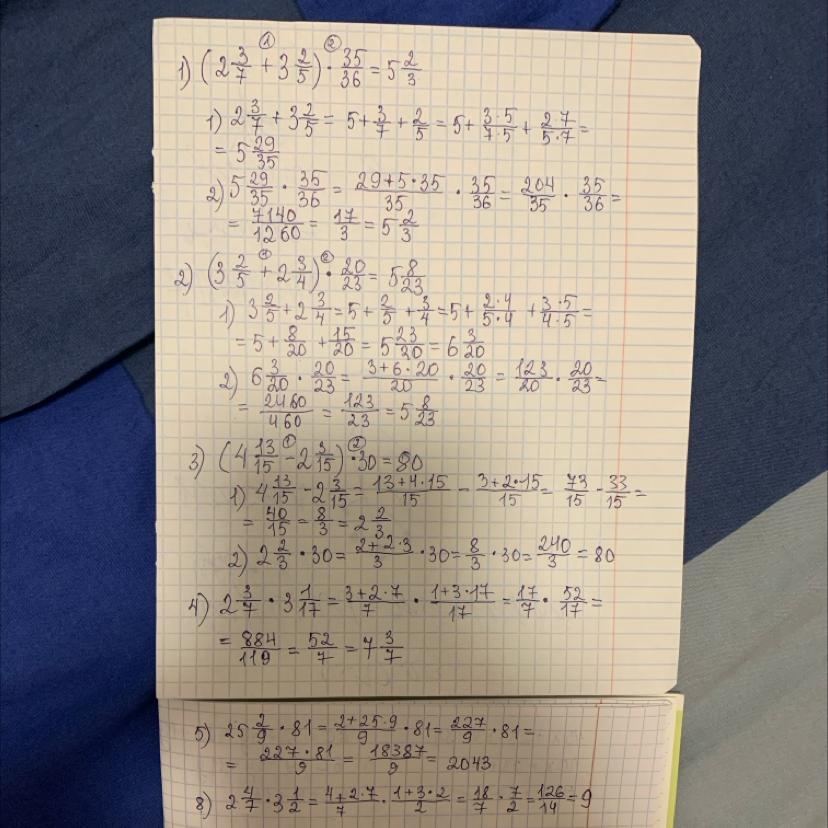 ① ②
1) (2 3/7 + 3 2/5) · 35/36 = 5 2/3
1) 2 3/7 + 3 2/5 = 5 + 3/7 + 2/5 = 5 + 3·5/7·5 + 2·7/5·7 =
= 5 29/35
2) 5 29/35 · 35/36 = 29+5·35/35 · 35/36 = 204/35 · 35/36 =
= 7140/1260 = 17/3 = 5 2/3
① ②
2) (3 2/5 + 2 3/4) · 20/23 = 5 8/23
1) 3 2/5 + 2 3/4 = 5 + 2/5 + 3/4 = 5 + 2·4/5·4 + 3·5/4·5 =
= 5 + 8/20 + 15/20 = 5 23/20 = 6 3/20
2) 6 3/20 · 20/23 = 3+6·20/20 · 20/23 = 123/20 · 20/23 =
= 2460/460 = 123/23 = 5 8/23
① ②
3) (4 13/15 - 2 3/15) · 30 = 80
1) 4 13/15 - 2 3/15 = 13+4·15/15 - 3+2·15/15 = 73/15 - 33/15 =
= 40/15 = 8/3 = 2 2/3
2) 2 2/3 · 30 = 2+2·3/3 · 30 = 8/3 · 30 = 240/3 = 80
4) 2 3/7 · 3 1/17 = 3+2·7/7 · 1+3·17/17 = 17/7 · 52/17 =
= 884/119 = 52/7 = 7 3/7
5) 25 2/9 · 81 = 2+25·9/9 · 81 = 227/9 · 81 =
= 227·81/9 = 18387/9 = 2043
8) 2 4/7 · 3 1/2 = 4+2·7/7 · 1+3·2/2 = 18/7 · 7/2 = 126/14 = 9